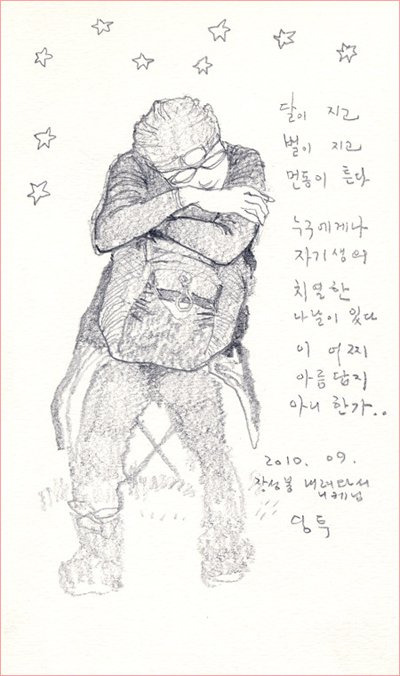 달이 지고
별이 지고
먼동이 튼다
누구에게나
자기생의
치열한
나날이 있다
이 어찌
아름답지
아니 한가..
2010. 09.
장성봉 내려와서
딩투